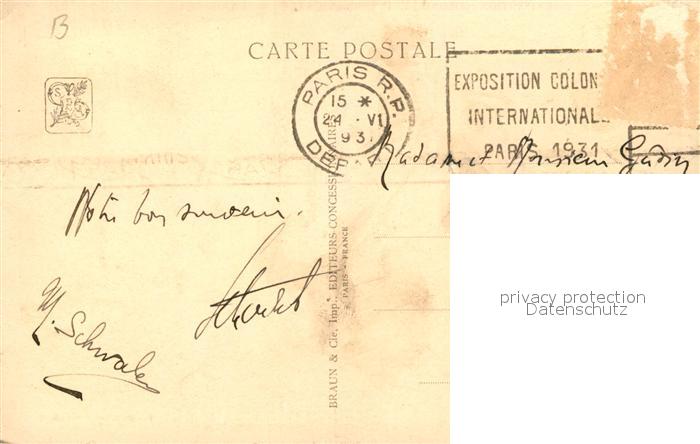 B
CARTE POSTALE
PARIS R.P.
15 *
24 · VI
931
DEP
EXPOSITION COLON
INTERNATIONAL
PARIS 1931
Madame et Monsieur
Notre bon souvenir.
M. Schwaler
BRAUN & Cie, Imp., EDITEURS-CONCESS IRES
PARIS - FRANCE
privacy protection
Datenschutz